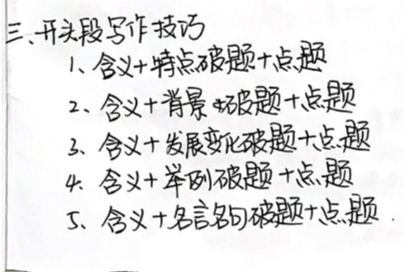 三、开头段写作技巧
1、含义+特点破题+点题
2、含义+背景+破题+点题
3、含义+发展变化破题+点题
4、含义+举例破题+点题
5、含义+名言名句破题+点题.